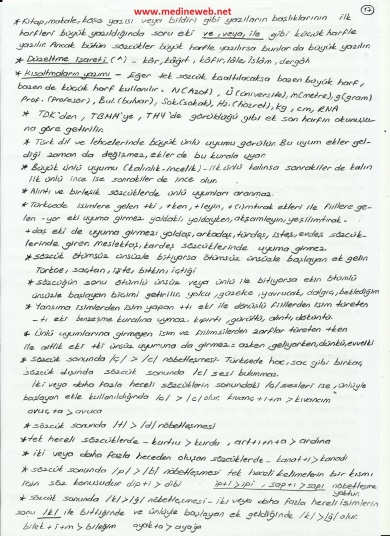 www.medineweb.net
17
* Kitap, makale, köşe yazısı veya bildiri gibi yazıların başlıklarının ilk
harfleri büyük yazıldığında soru eki ve, veya, ile gibi küçük harfle
yazılır. Ancak bütün sözcükler büyük harfle yazılırsa bunlar da büyük yazılır.
* Düzeltme işareti (^) - kâr, kâğıt, kâfir, lâle, İslâm, dergâh
* Kısaltmaların yazımı - Eğer tek sözcük kısaltılacaksa bazen büyük harf,
bazen de küçük harf kullanılır. N(Azot), Ü(üniversite), m(metre), g(gram)
Prof. (Profesör), Bul (bulvar), Sok (sokak), Hz. (hazret), kg, cm, ENA
* TDK'den, TBMM'ye, THY'de görüldüğü gibi ek son harfin okunuşu-
na göre getirilir.
* Türk dil ve lehçelerinde büyük ünlü uyumu görülür. Bu uyum ekler gel-
diği zaman da değişmez, ekler de bu kurala uyar.
* Büyük ünlü uyumu (kalınlık-incelik) - ilk ünlü kalınsa sonrakiler de kalın
ilk ünlü ince ise sonrakiler de ince olur.
* Alıntı ve birleşik sözcüklerde ünlü uyumları aranmaz.
* Türkçede isimlere gelen +ki, +ken, +leyin, +(i)mtırak ekleri ile fiillere ge-
len -yor eki uyuma girmez yoldaki yoldayken, akşamleyin, yeşilimtırak.
+daş eki de uyuma girmez: yoldaş, arkadaş, türdeş, işteş, evdeş sözcük-
lerinde giren meslektaş, kardeş sözcüklerinde uyuma girmez.
* sözcük ötümsüz ünsüzle bitiyorsa ötümsüz ünsüzle başlayan ek gelir
Türkçe, saçtan, işte, bitkin, içtiği
* sözcüğün sonu ötümlü ünsüz veya ünlü ile bitiyorsa ekin ötümlü
ünsüzle başlayan biçimi getirilir. yolcu, güzelce, yavrucak, dalgıç, beklediğim
* Yansıma isimlerden isim yapan +tı eki ile dönüşlü fiillerden isim türeten
-tı eki benzeşme kuralına uymaz. kıpırtı, görüntü, alıntı, debontı.
* Ünlü uyumlarına girmeyen isim ve fiilimsilerden zarflar türeten +ken
ile aitlik eki +ki ünsüz uyumuna da girmez = azken, geliyorken, dünkü, evvelki
* Sözcük sonunda /ç/ > /c/ nöbetleşmesi - Türkçede hac, sac gibi birkaç
sözcük dışında sözcük sonunda /c/ sesi bulunmaz.
İki veya daha fazla heceli sözcüklerin sonundaki /ç/ sesleri ise, ünlüyle
başlayan ekle kullanıldığında /ç/ > /c/ olur. kıvanç + ı + m > kıvancım
avuç + a > avuca
* sözcük sonunda /t/ > /d/ nöbetleşmesi
* tek heceli sözcüklerde - kurt + u > kurdu, art + ı + n + a > ardına
* iki veya daha fazla heceden oluşan sözcüklerde - kanat + ı > kanadı
* sözcük sonunda /p/ > /b/ nöbetleşmesi tek heceli kelimelerin bir kısmı
için söz konusudur dip + i > dibi ip + i > ipi, sap + ı > sapı nöbetleşme yoktur.
* sözcük sonunda /k/ > /ğ/ nöbetleşmesi - iki veya daha fazla heceli isimlerin
sonu /k/ ile bittiğinde ve ünlüyle başlayan ek geldiğinde /k/ > /ğ/ olur.
bilek + i + m > bileğim ayak + a > ayağa